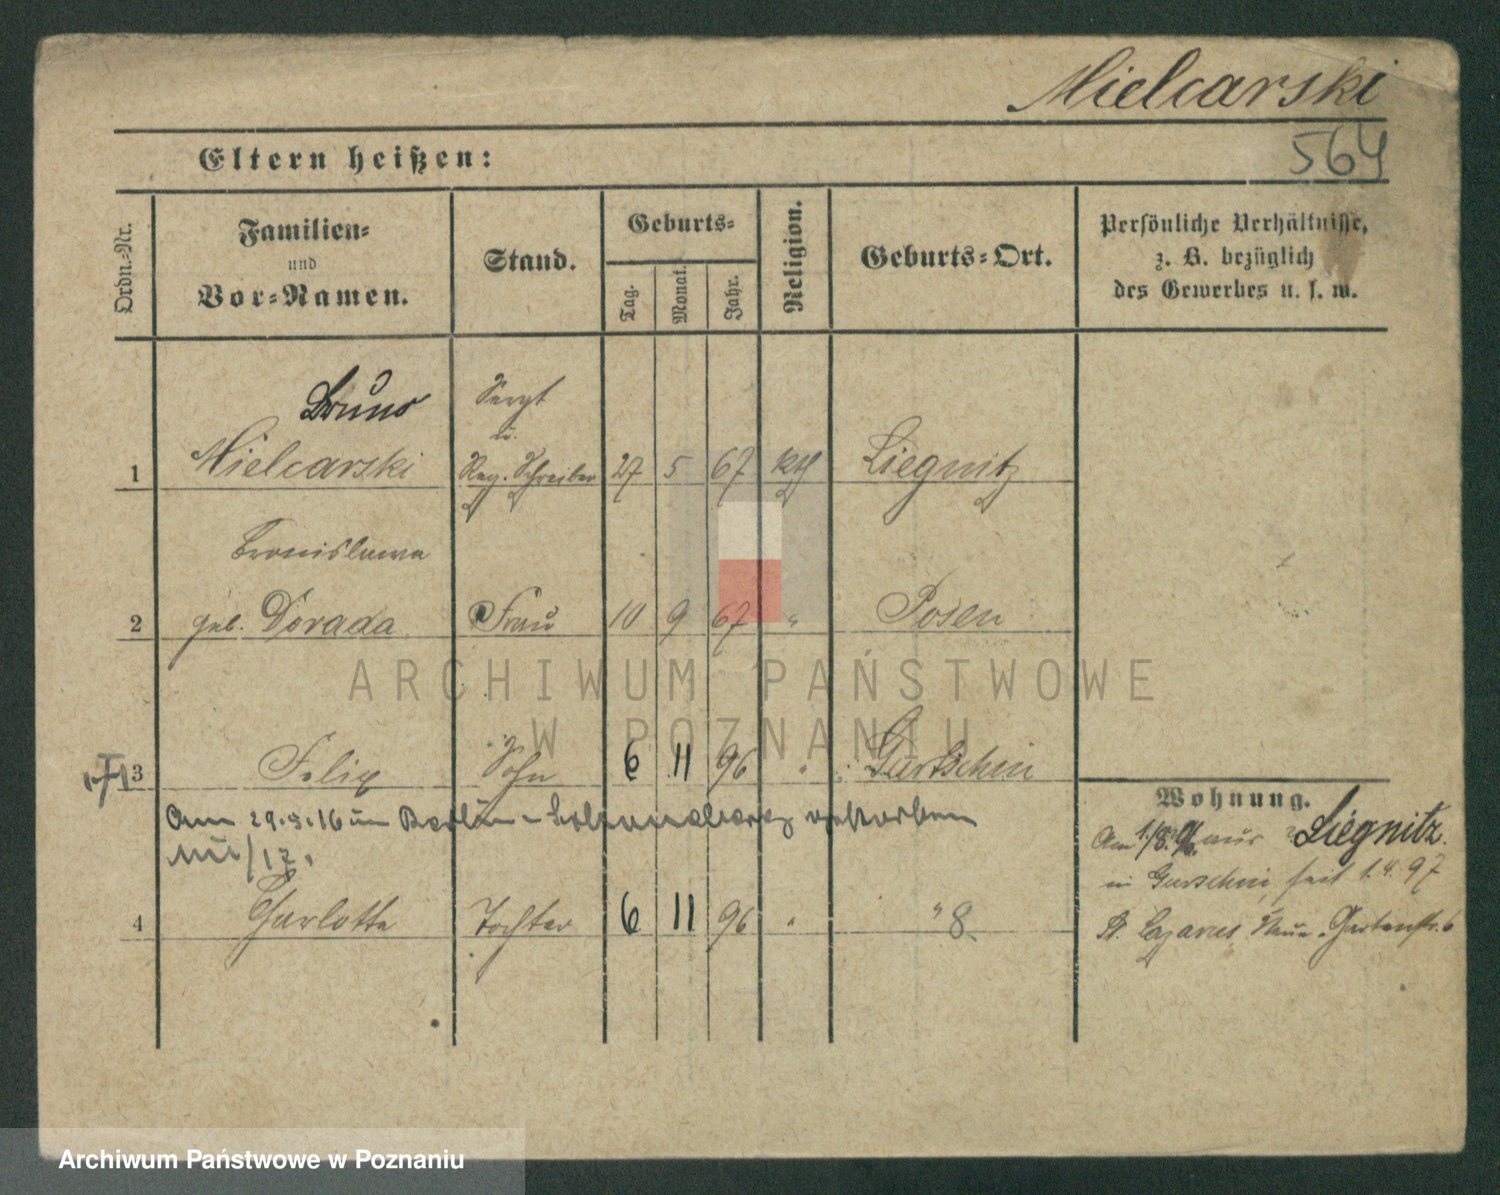 Mielcarski
564
Eltern heißen:
Ordn.-Nr.
Familien-
und
Vor-Namen.
Stand.
Geburts-
Tag.
Monat.
Jahr.
Religion.
Geburts-Ort.
Persönliche Verhältnisse,
z. B. bezüglich
des Gewerbes u. s. w.
Bruno
Sergt
u.
1 Mielcarski Reg. Schreiber 27 5 67 kth Liegnitz
Bronislawa
2 geb. Dorada Frau 10 9 67 " Posen
3 Felix Sohn 6 11 96 "
Am 29.3.16 in Berlin - verstorben
4 Charlotte Tochter 6 11 96 " "
Wohnung.
Am Liegnitz.
in seit 1.4.97
St. Lazarus, Neue Gartenstr. 6
ARCHIWUM PAŃSTWOWE
W POZNANIU
Archiwum Państwowe w Poznaniu